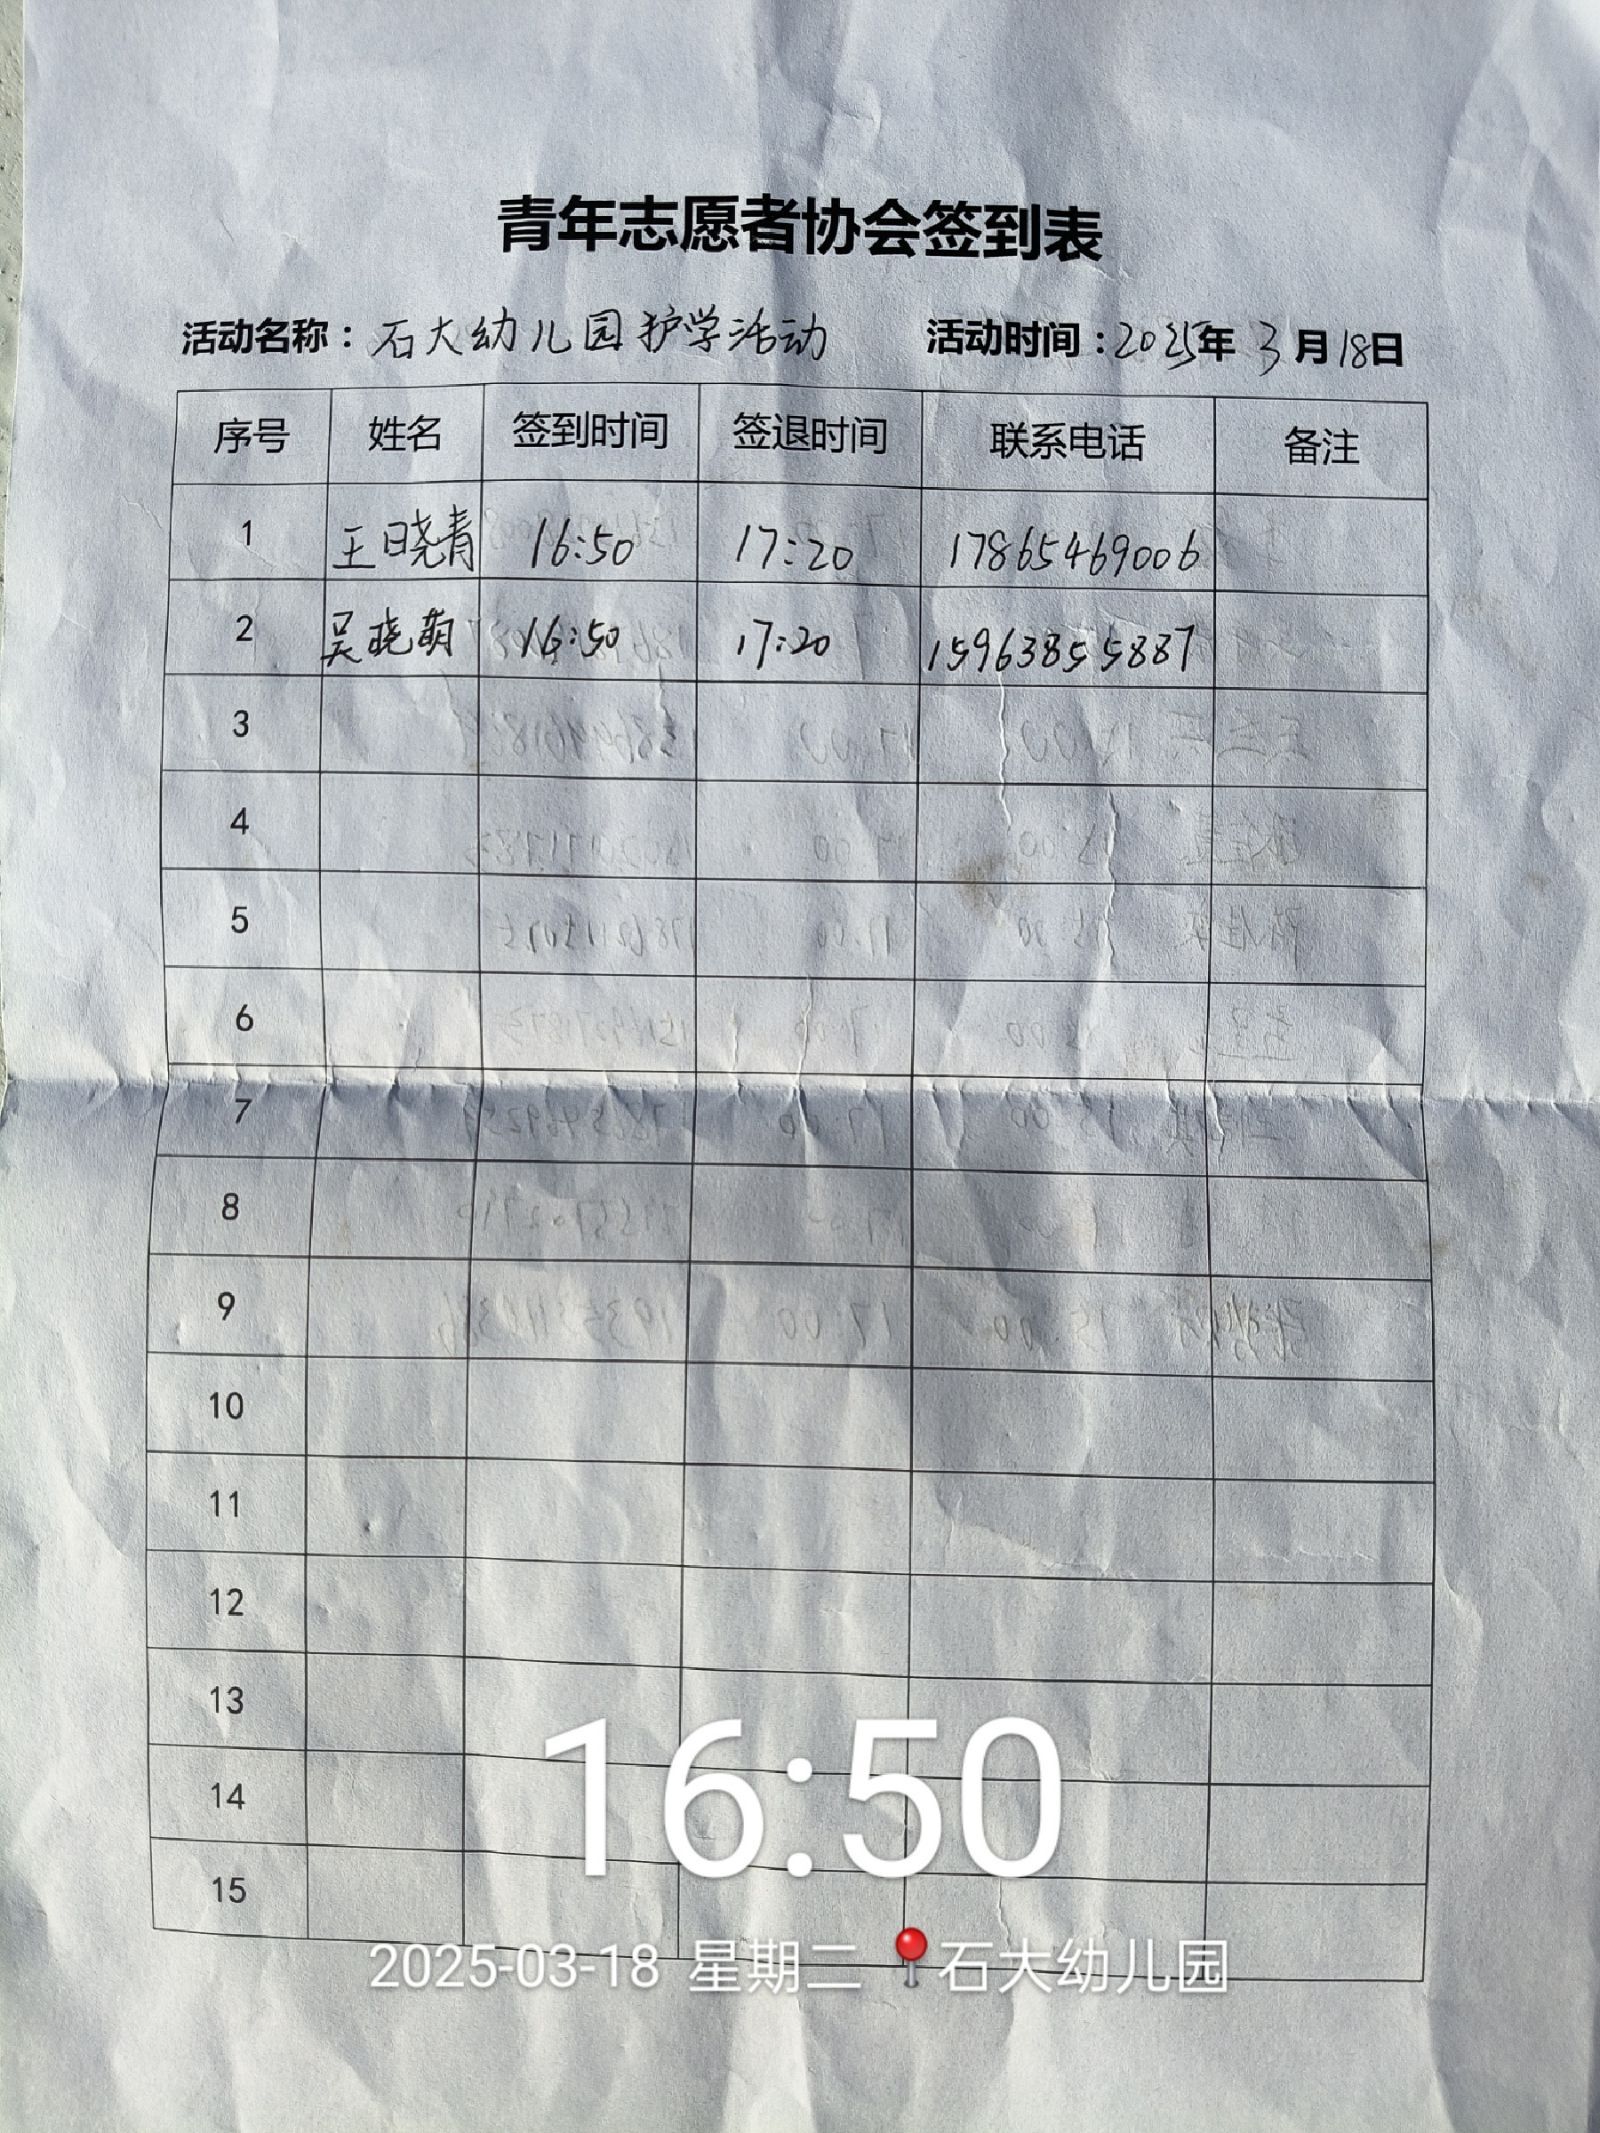 青年志愿者协会签到表
活动名称：石大幼儿园护学活动 活动时间：2025年 3月18日
序号 姓名 签到时间 签退时间 联系电话 备注
1 王晓青 16:50 17:20 17865469006
2 吴晓萌 16:50 17:20 15963855887
3
4
5
6
7
8
9
10
11
12
13
14
15
16:50
2025-03-18 星期二 石大幼儿园